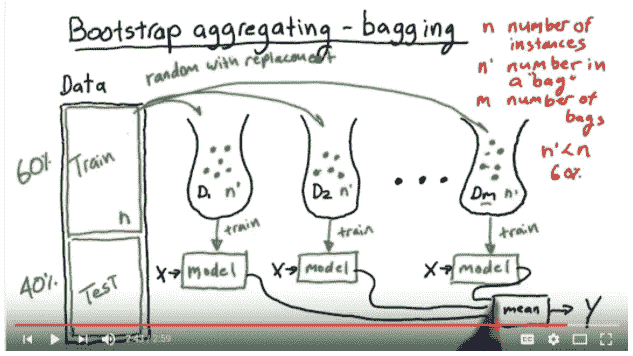 Bootstrap aggregating - bagging
n number of
instances
n' number in
a "bag"
m number of
bags
n' < n
60%
random with replacement
Data
60%
Train
n
40%
Test
D1 n'
D2 n'
Dm n'
train
train
train
X → model
X → model
X → model
mean → Y
CC